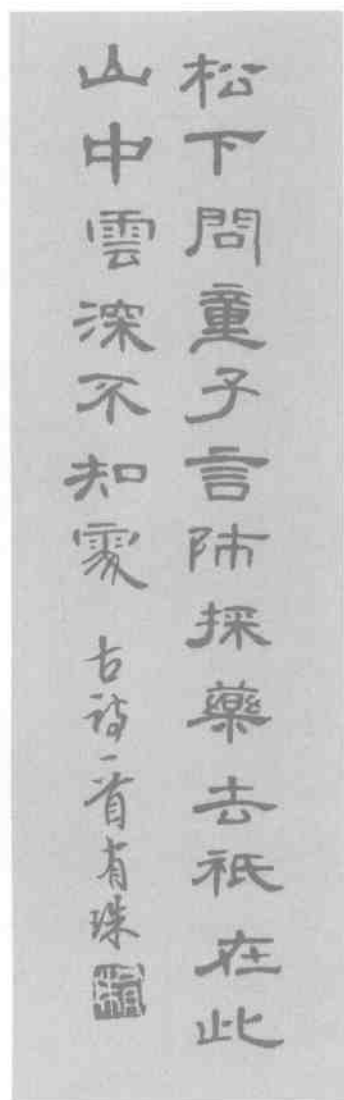 松下問童子言師採藥去祇在此
山中雲深不知處
古詩一首有珠